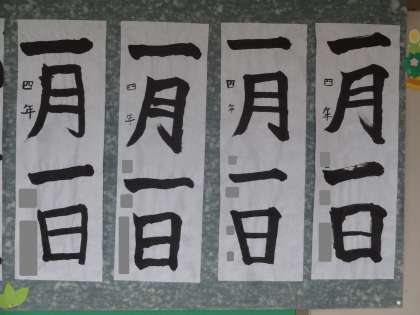 一月一日
四年
一月一日
四年
一月一日
四年
一月一日
四年